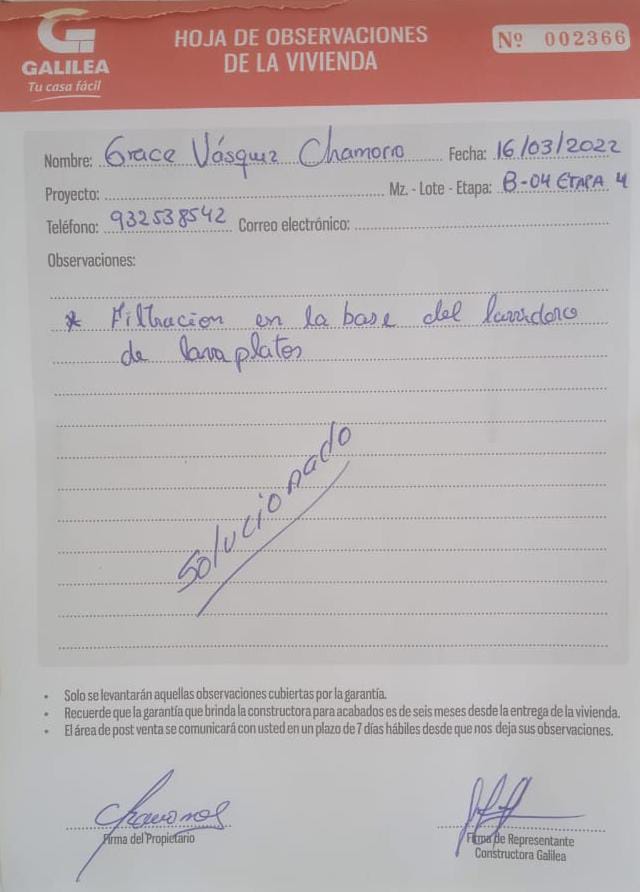 GALILEA
Tu casa fácil
HOJA DE OBSERVACIONES
DE LA VIVIENDA
Nº 002366
Nombre: Grace Vásquez Chamorro Fecha: 16/03/2022
Proyecto: Mz. - Lote - Etapa: B-04 ETAPA 4
Teléfono: 932538542 Correo electrónico:
Observaciones:
* Filtracion en la base del
de lavaplatos
Solucionado
• Solo se levantarán aquellas observaciones cubiertas por la garantía.
• Recuerde que la garantía que brinda la constructora para acabados es de seis meses desde la entrega de la vivienda.
• El área de post venta se comunicará con usted en un plazo de 7 días hábiles desde que nos deja sus observaciones.
Firma del Propietario
Firma de Representante
Constructora Galilea